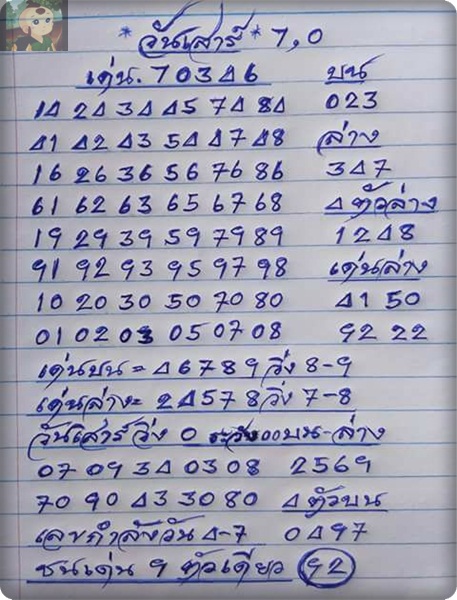 * วันเสาร์ * 7,0
เด่น. 70346 บน
14 24 34 45 74 84 023
41 42 43 54 47 48 ล่าง
16 26 36 56 76 86 347
61 62 63 65 67 68 4 ตัวล่าง
19 29 39 59 79 89 1248
91 92 93 95 97 98 เด่นล่าง
10 20 30 50 70 80 41 50
01 02 03 05 07 08 92 22
เด่นบน = 46789 วิ่ง 8-9
เด่นล่าง= 24578 วิ่ง 7-8
วันเสาร์ วิ่ง 0 ระวัง 00 บน-ล่าง
07 09 34 03 08 2569
70 90 43 30 80 4 ตัวบน
เลขกำลังวัน 4-7 0497
ชนเด่น 9 ตัวเดียว 92